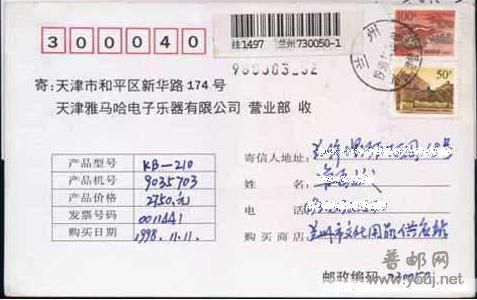 300040
挂1497 兰州730050-1
100分
50分
寄:天津市和平区新华路174号
天津雅马哈电子乐器有限公司 营业部 收
产品型号 KB-210
产品机号 9035703
产品价格 2750.元
发票号码 0011441
购买日期 1998.11.11.
寄信人地址:
姓 名
电 话
购买商店: 兰州市文化用品供应站
邮政编码 730050
普邮网
www.youj.net